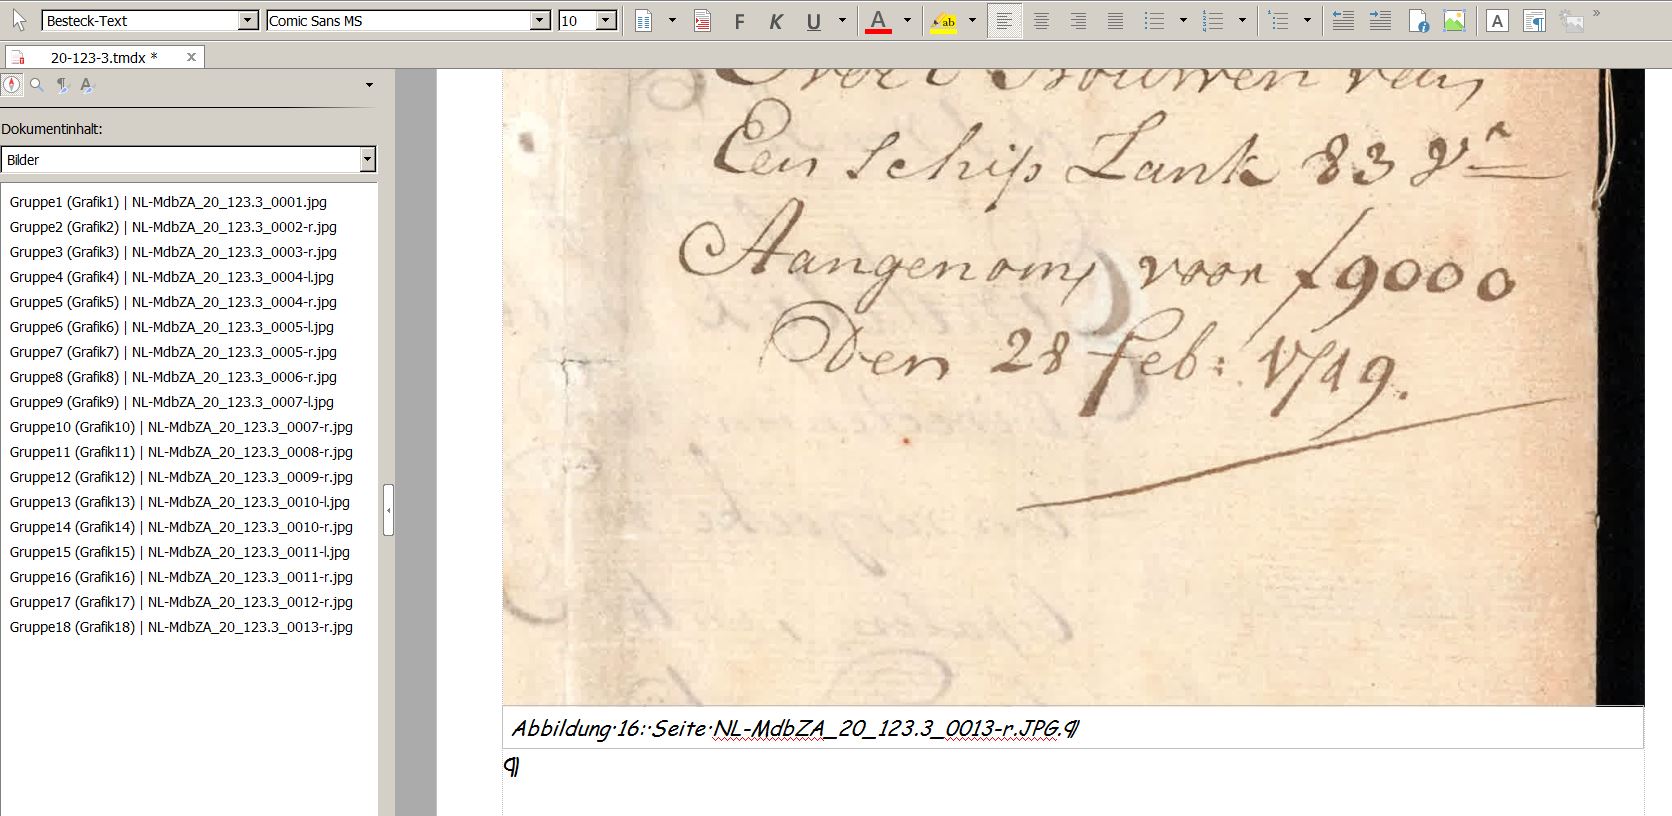 Besteck-Text
Comic Sans MS
10
F K U A ab A
20-123-3.tmdx *
Dokumentinhalt:
Bilder
Gruppe1 (Grafik1) | NL-MdbZA_20_123.3_0001.jpg
Gruppe2 (Grafik2) | NL-MdbZA_20_123.3_0002-r.jpg
Gruppe3 (Grafik3) | NL-MdbZA_20_123.3_0003-r.jpg
Gruppe4 (Grafik4) | NL-MdbZA_20_123.3_0004-l.jpg
Gruppe5 (Grafik5) | NL-MdbZA_20_123.3_0004-r.jpg
Gruppe6 (Grafik6) | NL-MdbZA_20_123.3_0005-l.jpg
Gruppe7 (Grafik7) | NL-MdbZA_20_123.3_0005-r.jpg
Gruppe8 (Grafik8) | NL-MdbZA_20_123.3_0006-r.jpg
Gruppe9 (Grafik9) | NL-MdbZA_20_123.3_0007-l.jpg
Gruppe10 (Grafik10) | NL-MdbZA_20_123.3_0007-r.jpg
Gruppe11 (Grafik11) | NL-MdbZA_20_123.3_0008-r.jpg
Gruppe12 (Grafik12) | NL-MdbZA_20_123.3_0009-r.jpg
Gruppe13 (Grafik13) | NL-MdbZA_20_123.3_0010-l.jpg
Gruppe14 (Grafik14) | NL-MdbZA_20_123.3_0010-r.jpg
Gruppe15 (Grafik15) | NL-MdbZA_20_123.3_0011-l.jpg
Gruppe16 (Grafik16) | NL-MdbZA_20_123.3_0011-r.jpg
Gruppe17 (Grafik17) | NL-MdbZA_20_123.3_0012-r.jpg
Gruppe18 (Grafik18) | NL-MdbZA_20_123.3_0013-r.jpg
Bouwen van
Een schip Lank 83
Aangenom voor f 9000
Den 28 feb: 1719.
Abbildung·16:·Seite·NL-MdbZA_20_123.3_0013-r.JPG.¶
¶